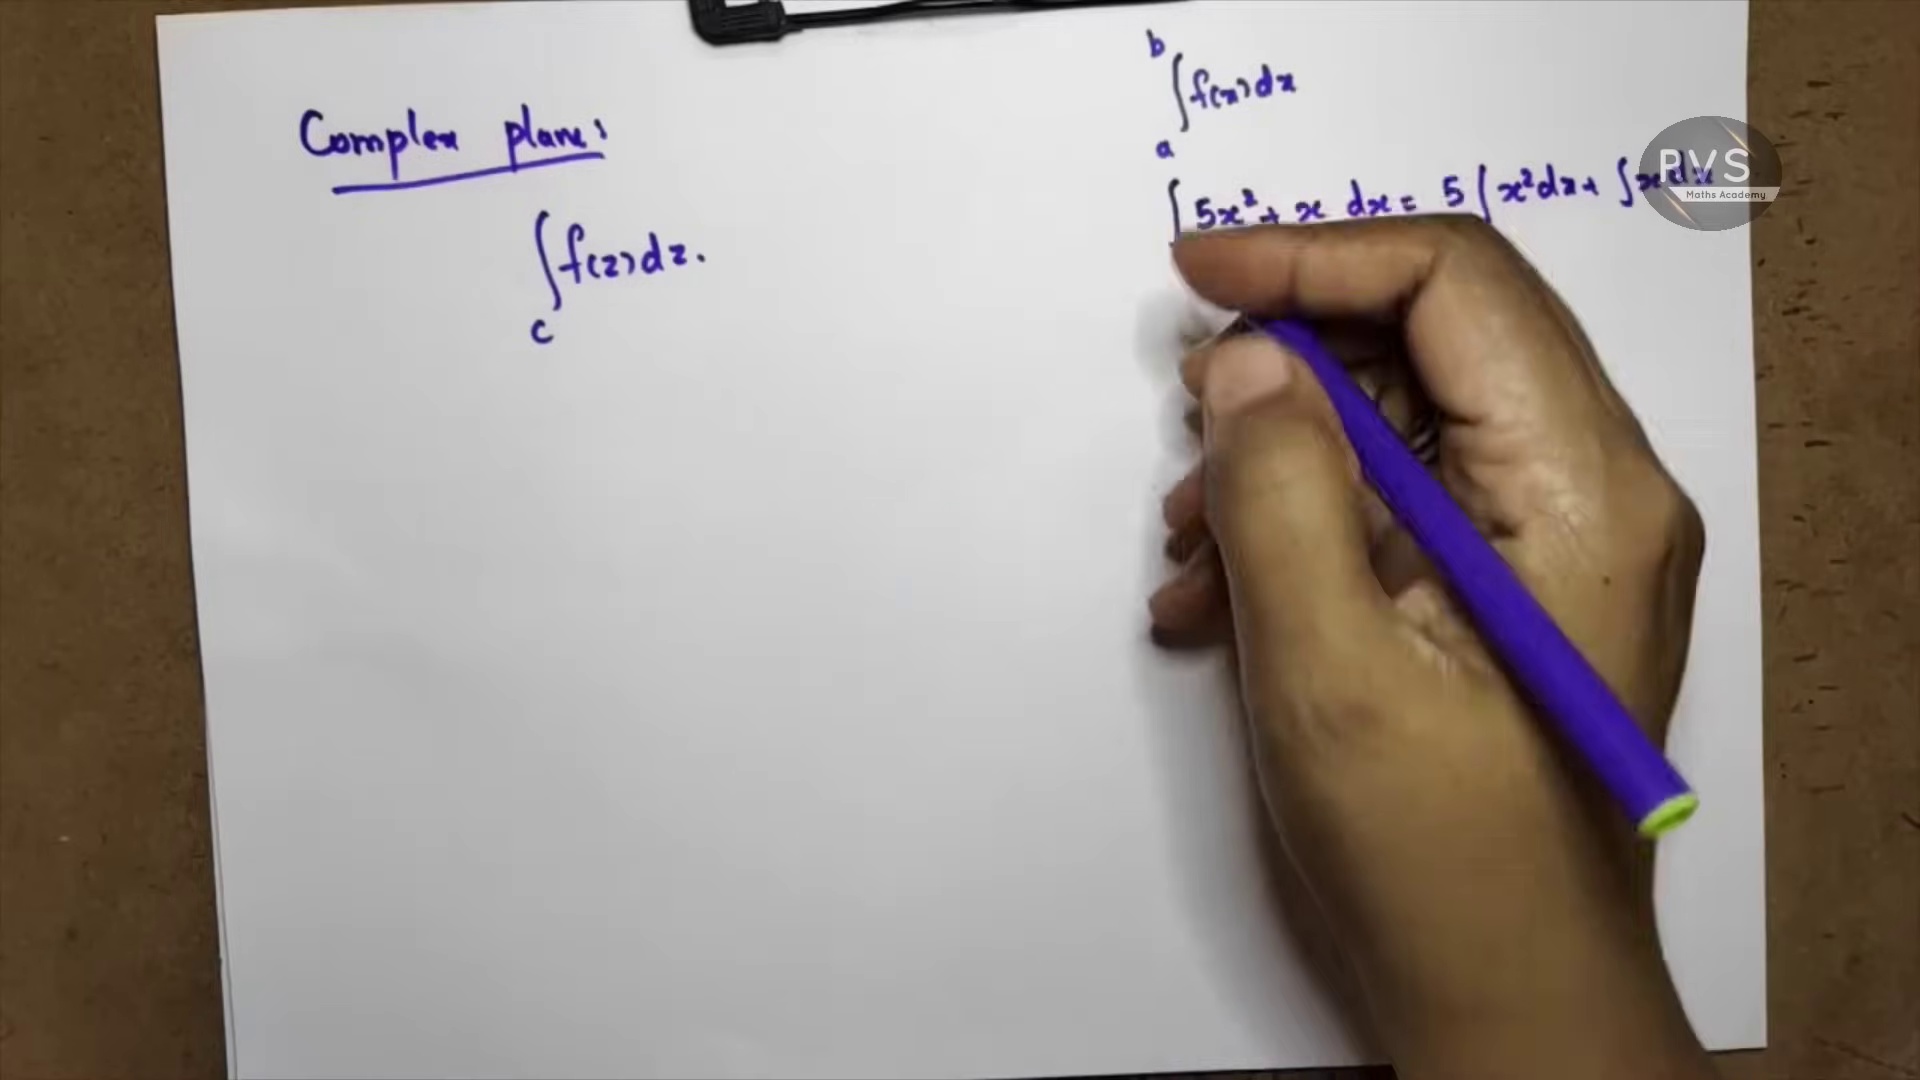 Complex plane:
∫_C f(z) dz.
∫_a^b f(x) dx
∫ 5x² + x dx = 5 ∫ x² dx + ∫ x dx
RVS
Maths Academy